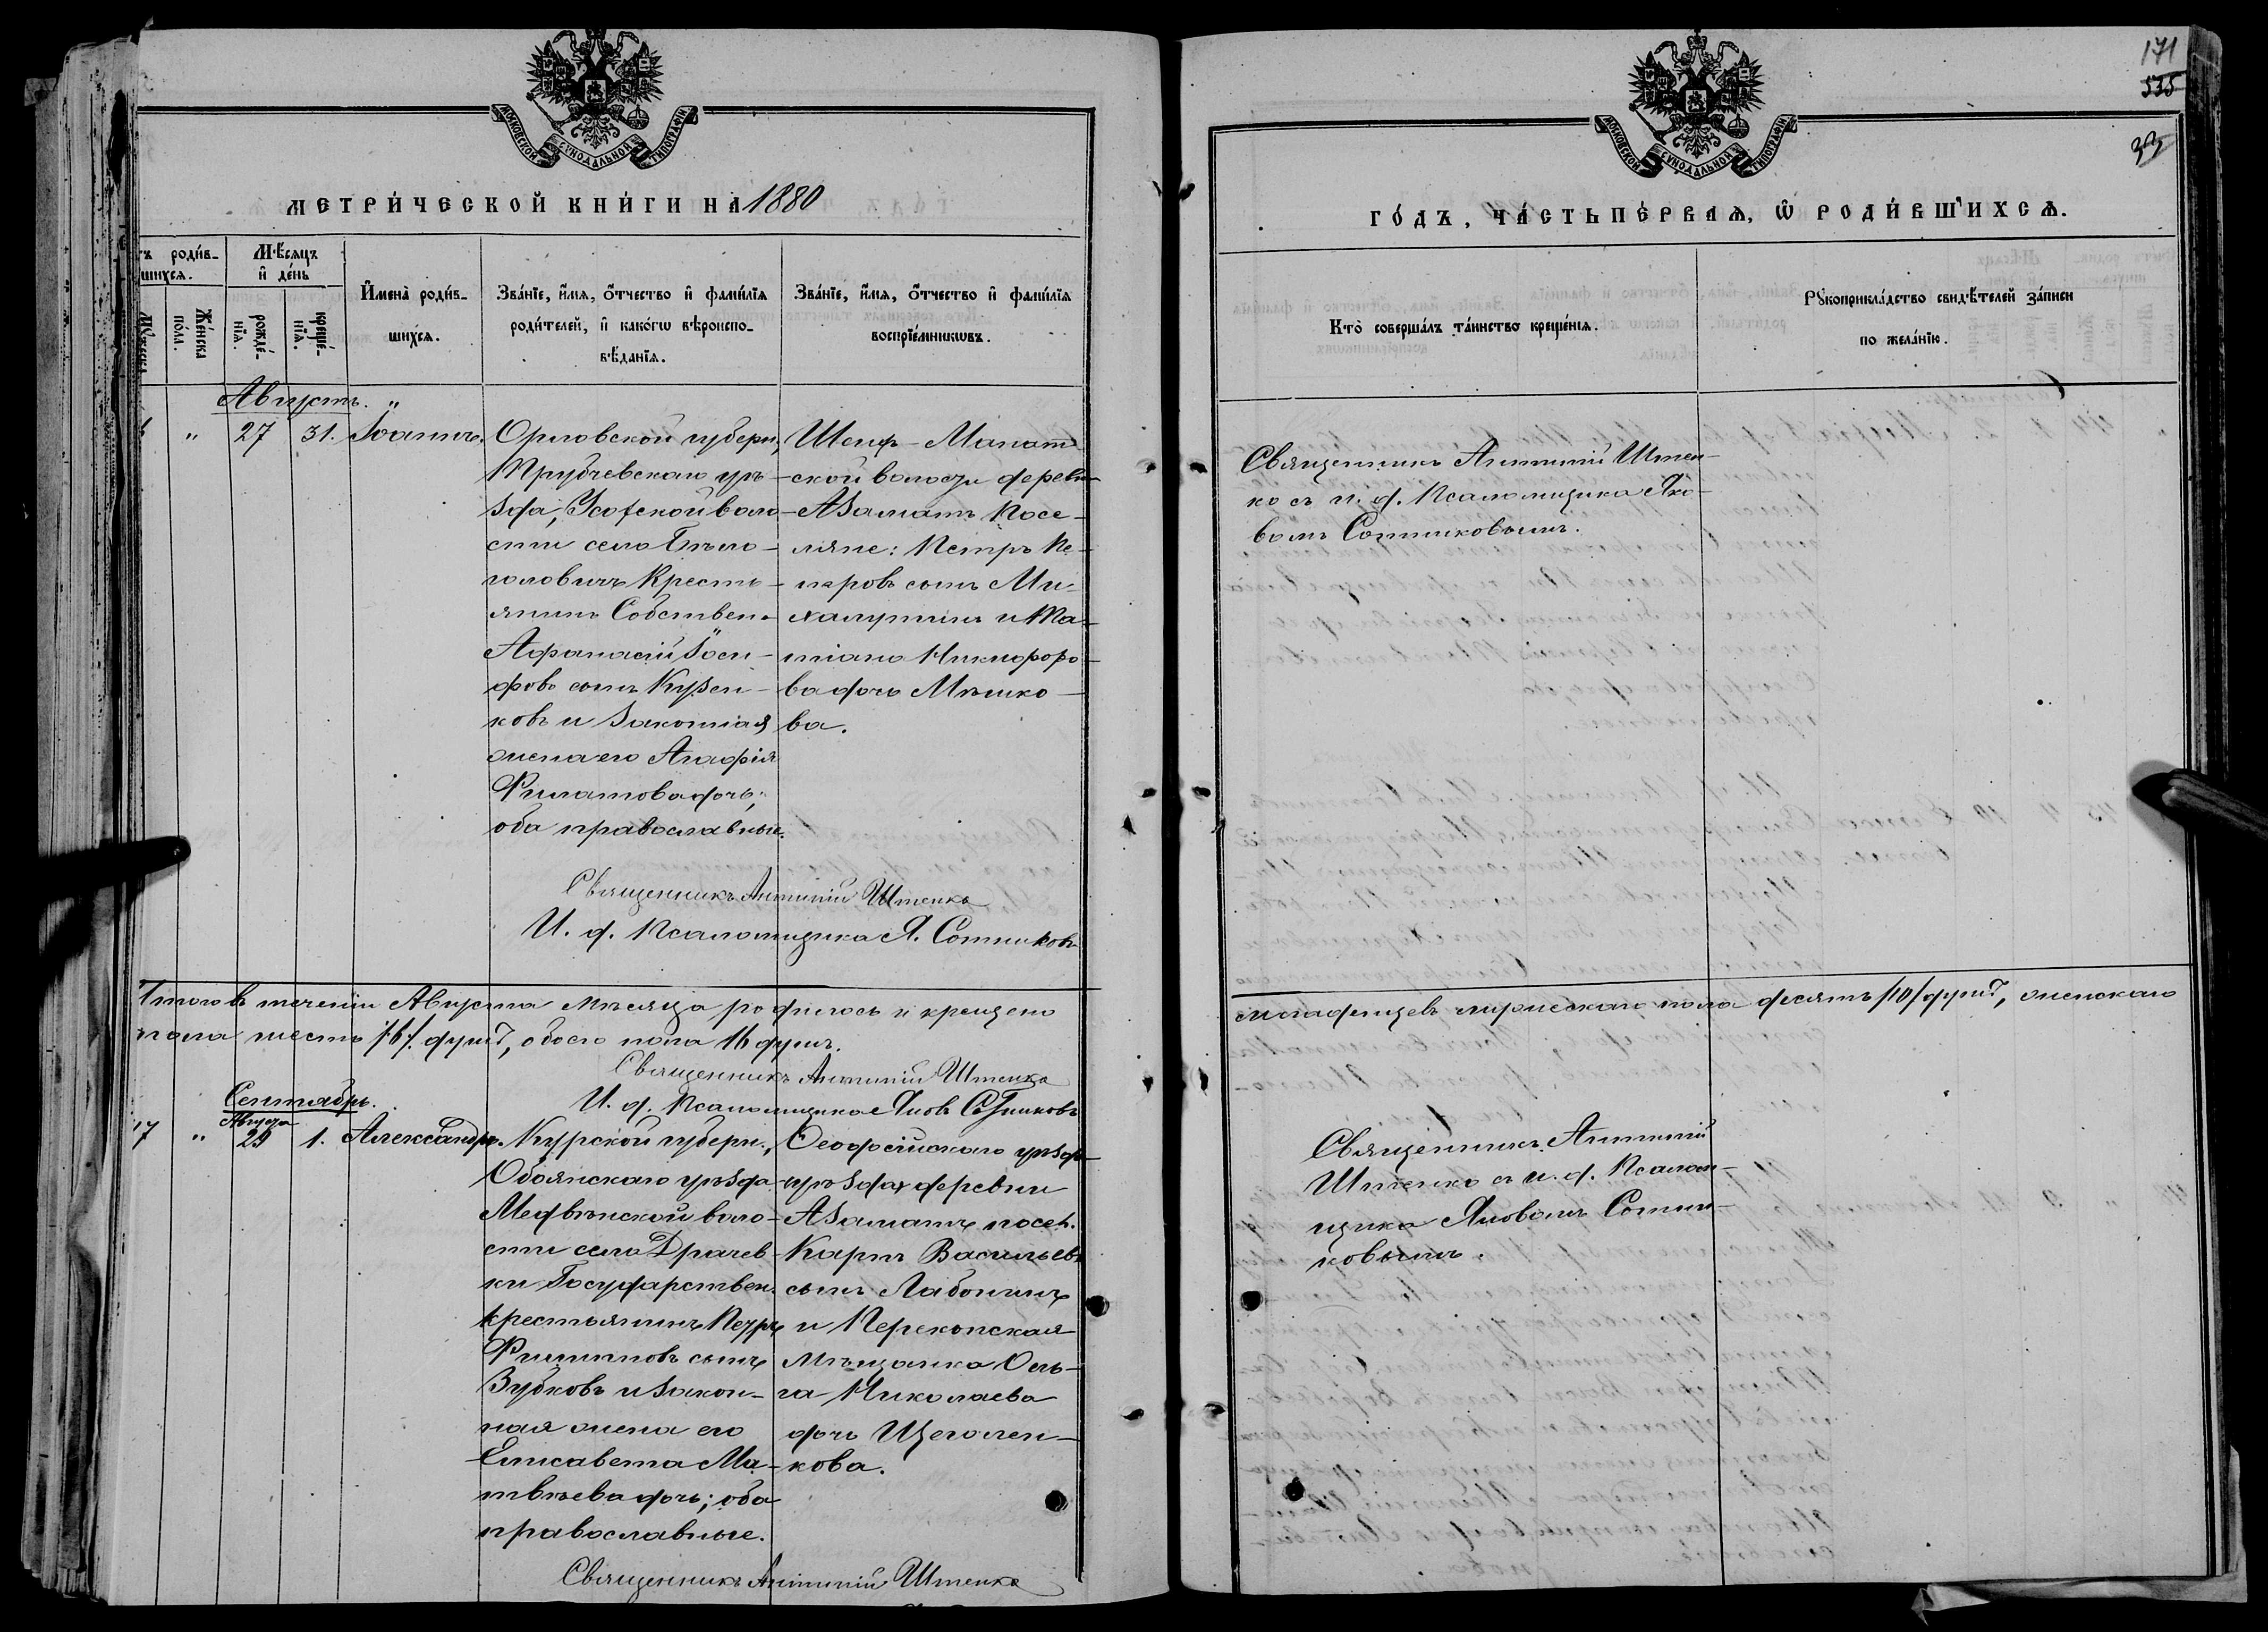 МОСКОВСКОЙ СУНОДАЛЬНОЙ ТИПОГРАФІИ
МЕТРИ́ЧЕСКОЙ КНИ́ГИ НА 1880
роди́в-
шихся.
Мꙋ́жеска
Же́нска по́ла.
Мѣ́сяцъ
и҆ де́нь
рожде́-
нїя.
креще́-
нїя.
И҆мена̀ роди́в-
ши́хся.
Зва́нїе, и҆́мя, ѻ҆́тчество и҆ фами́лїя
роди́телей, и҆ како́гѡ вѣроиспо-
вѣ́данїя.
Зва́нїе, и҆́мя, ѻ҆́тчество и҆ фами́лїя
воспрїе́мникѡвъ.
Августъ.
" 27 31. Іоаннъ.
Орловской губерн.,
Трубчевскаго уѣ-
зда, Усохской воло-
сти села
крестья-
янинъ Собствен.
Афанасій Іоси-
фовъ сынъ Кузен-
ковъ и законная
жена его Агафія
Филатова дочь;
оба православные.
Шейх-Монат
ской волости деревни
Азаматъ посе-
ляне: Петръ Пе-
тровъ сынъ Ми-
халуткинъ и Та-
тіана Никифоро-
ва дочь Мѣшко-
ва.
Священникъ Антиній Штенко
И. д. Псаломщика Я. Сотниковъ
Итого въ теченіи Августа мѣсяца родилось и крещено
пола шесть /6/ душъ, обоего пола 16 душъ.
Священникъ Антиній Штенко
И. д. Псаломщика Яковъ Сотниковъ
Сентябрь.
Августа
17 " 29 1. Александръ.
Курской губерн.,
Обоянскаго уѣзда
Медвѣнской воло-
сти села Драчев-
ки Государствен.
крестьянинъ Петръ
Филипповъ сынъ
Зубковъ и закон-
ная жена его
Елисавета Ма-
твѣева дочь; оба
православные.
Ѳеодосійскаго уѣзда
уѣзда деревни
Азаматъ посел.
Карпъ Васильевъ
сынъ Лабонинъ
и Перекопская
мѣщанка Оль-
га Николаева
дочь Щеголен-
кова.
Священникъ Антиній Штенко
171
535
МОСКОВСКОЙ СУНОДАЛЬНОЙ ТИПОГРАФІИ
ГО́ДЪ, ЧА́СТЬ ПЕ́РВАЯ, Ѡ҆ РОДИ́ВШИХСЯ.
Кто̀ соверша́лъ та́инство креще́нїя.
Рꙋкоприкла́дство свидѣ́телей за́писи
по жела́нїю.
Священникъ Антиній Штен-
ко съ и. д. Псаломщика Яко-
вомъ Сотниковымъ.
младенцевъ мужескаго пола десять /10/ душъ, женскаго
Священникъ Антиній
Штенко съ и. д. Псалом-
щика Яковомъ Сотни-
ковымъ.